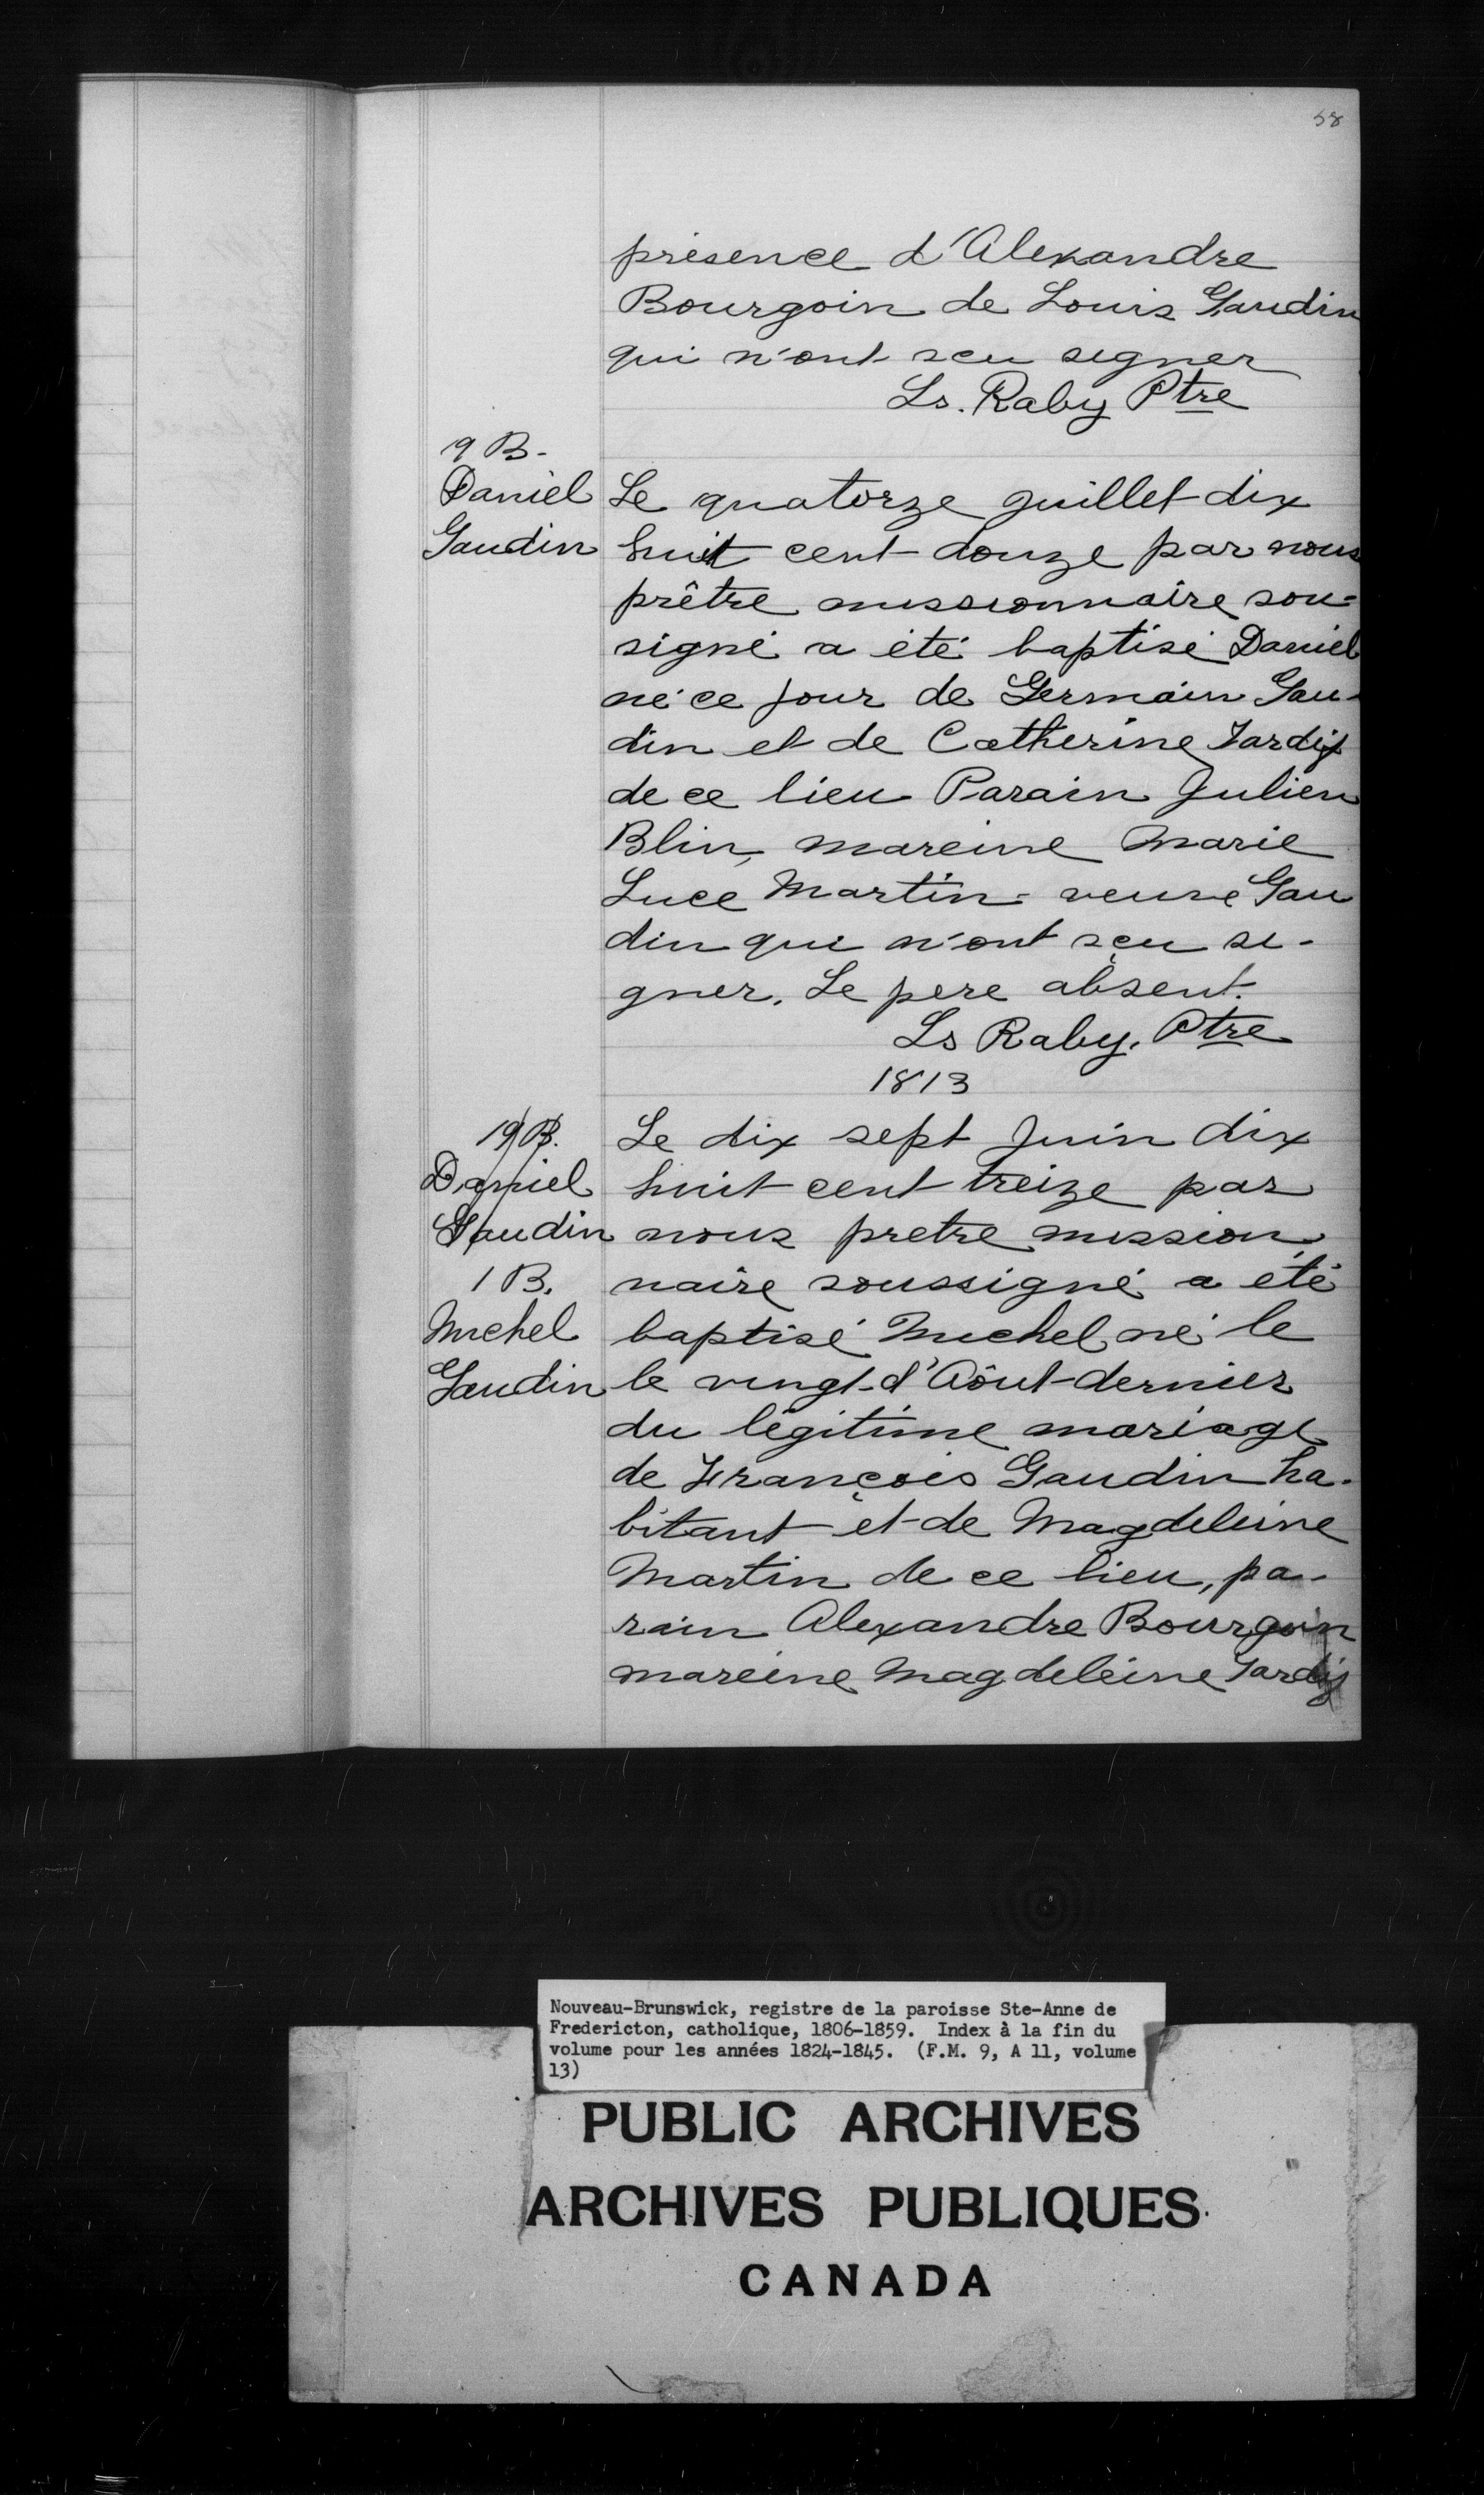 58
présence d'Alexandre
Bourgoin de Louis Gaudin
qui n'ont sçu signer
Ls. Raby Ptre
9 B.
Daniel
Gaudin
Le quatorze juillet dix
huit cent douze par nous
prêtre missionnaire sou-
signé a été baptisé Daniel
né ce jour de Germain Gau-
din et de Catherine Tardif
de ce lieu Parain Julien
Blin, mareine Marie
Luce Martin veuve Gau
din qui n'ont sçu si-
gner. Le pere absent.
Ls Raby. Ptre
1813
19 B.
Daniel
Gaudin
1 B.
Michel
Gaudin
Le dix sept Juin dix
huit cent treize par
nous pretre mission
naire soussigné a été
baptisé Michel né le
le vingt d'Aôut dernier
du légitime mariage
de François Gaudin ha-
bitant et de Magdeleine
Martin de ce lieu, pa-
rain Alexandre Bourgoin
mareine Magdeleine Tardif
Nouveau-Brunswick, registre de la paroisse Ste-Anne de
Fredericton, catholique, 1806-1859. Index à la fin du
volume pour les années 1824-1845. (F.M. 9, A 11, volume
13)
PUBLIC ARCHIVES
ARCHIVES PUBLIQUES
CANADA